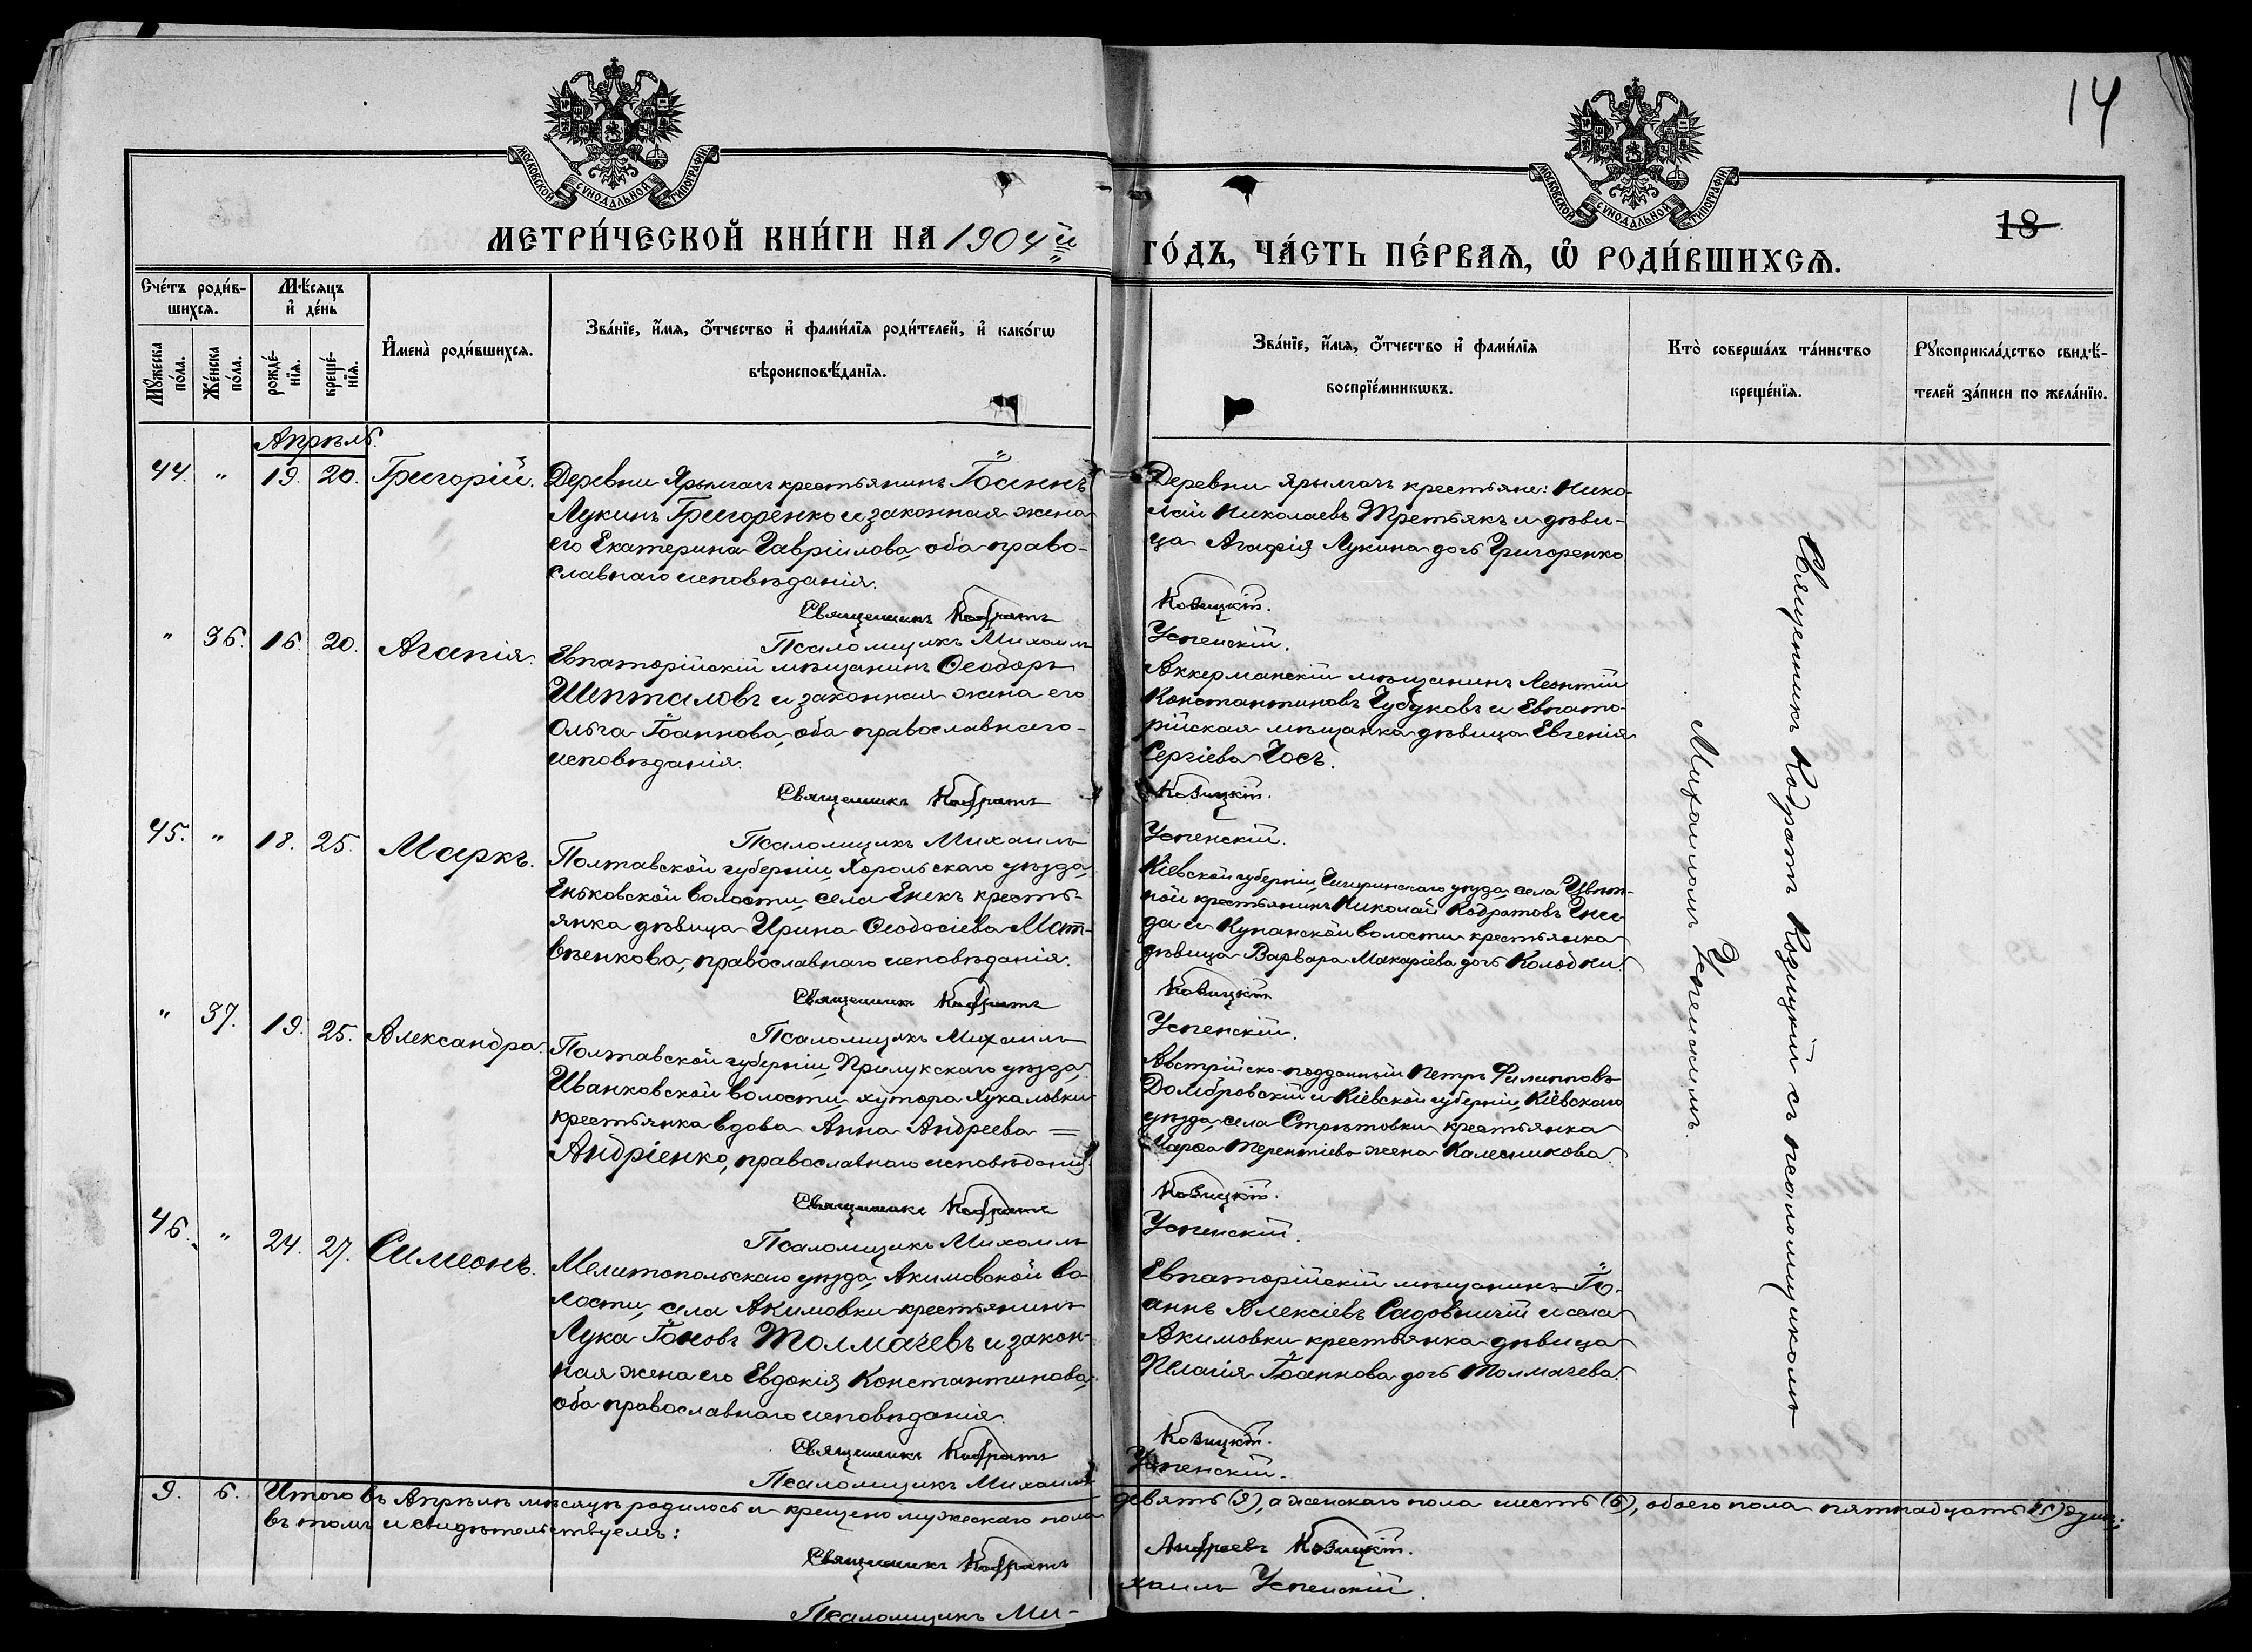 14
МОСКОВСКОЙ СѴНОДАЛЬНОЙ ТИПОГРАФІИ
МОСКОВСКОЙ СѴНОДАЛЬНОЙ ТИПОГРАФІИ
18
МЕТРИ́ЧЕСКОЙ КНИ́ГИ НА 1904й
ГО́ДЪ, ЧА́СТЬ ПЕ́РВАѦ, Ѽ РОДИ́ВШИХСѦ.
Сче́тъ роди́в-
шихсѧ.
Мꙋ́жеска
по́ла.
Же́нска
по́ла.
Мѣ́сѧцъ
и҆ де́нь
рожде́-
нїѧ.
креще́-
нїѧ.
И҆мена̀ роди́вшихсѧ.
Зва́нїе, и҆́мѧ, ѻ҆́тчество и҆ фами́лїѧ роди́телей, и҆ како́гѡ
вѣроисповѣ́данїѧ.
Зва́нїе, и҆́мѧ, ѻ҆́тчество и҆ фами́лїѧ
воспрїе́мникѡвъ.
Кто̀ соверша́лъ та́инство
креще́нїѧ.
Рꙋкоприкла́дство свидѣ́-
телей за́писи по жела́нїю.
Апрѣль.
44. " 19. 20. Григорій.
Деревни Ярылгачъ крестьянинъ Іоаннъ
Лукинъ Григоренко и законная жена
его Екатерина Гавріилова, оба право-
славнаго исповѣданія.
Священникъ Кодратъ
Псаломщикъ Михаилъ
Деревни Ярылгачъ крестьяне: Нико-
лай Николаевъ Третьякъ и дѣви-
ца Агафія Лукина дочь Григоренко
Козицкій.
Успенскій.
" 36. 16. 20. Агапія.
Евпаторійскій мѣщанинъ Ѳеодоръ
Шепталовъ и законная жена его
Ольга Іоаннова, оба православнаго
исповѣданія.
Священникъ Кодратъ
Псаломщикъ Михаилъ
Аккерманскій мѣщанинъ Леонтій
Константиновъ Губуковъ и Евпато-
рійская мѣщанка дѣвица Евгенія
Сергіева Чосъ.
Козицкій.
Успенскій.
45. " 18. 25. Маркъ.
Полтавской губерніи, Хорольскаго уѣзда,
Еньковской волости, села Енекъ кресть-
янка дѣвица Ирина Ѳеодосіева Мат-
вѣенкова, православнаго исповѣданія.
Священникъ Кодратъ
Псаломщикъ Михаилъ
Кіевской губерніи, Чигиринскаго уѣзда, села Цвѣт-
ной крестьянинъ Николай Кодратовъ Гни-
да и Купанской волости крестьянка
дѣвица Варвара Макаріева дочь Колодки.
Козицкій
Успенскій.
" 37. 19. 25. Александра.
Полтавской губерніи, Прилукскаго уѣзда,
Иванковской волости, хутора Жукаловки
крестьянка вдова Анна Андреева =
Андріенко, православнаго исповѣданія.
Священникъ Кодратъ
Псаломщикъ Михаилъ
Австрійско-подданный Петръ Филипповъ
Домбровскій и Кіевской губерніи, Кіевскаго
уѣзда, села Стрѣтовки крестьянка
Марѳа Терентіева жена Калесникова.
Козицкій.
Успенскій.
46. " 24. 27. Симеонъ.
Мелитопольскаго уѣзда, Акимовской во-
лости, села Акимовки крестьянинъ
Лука Іоновъ Толмачевъ и закон-
ная жена его Евдокія Константинова,
оба православнаго исповѣданія.
Священникъ Кодратъ
Псаломщикъ Михаилъ
Евпаторійскій мѣщанинъ Іо-
аннъ Алексіевъ Садовничій и села
Акимовки крестьянка дѣвица
Пелагія Іоаннова дочь Толмачева.
Козицкій.
Успенскій.
Священникъ Кодратъ Козицкій съ псаломщикомъ
Михаиломъ Успенскимъ.
9. 6. Итого въ Апрѣлѣ мѣсяцѣ родилось и крещено мужескаго пола
девять (9), а женскаго пола шесть (6), обоего пола пятнадцать (15) душъ;
въ томъ и свидѣтельствуемъ:
Священникъ Кодратъ
Андреевъ Козицкій.
Псаломщикъ Ми-
хаилъ Успенскій.